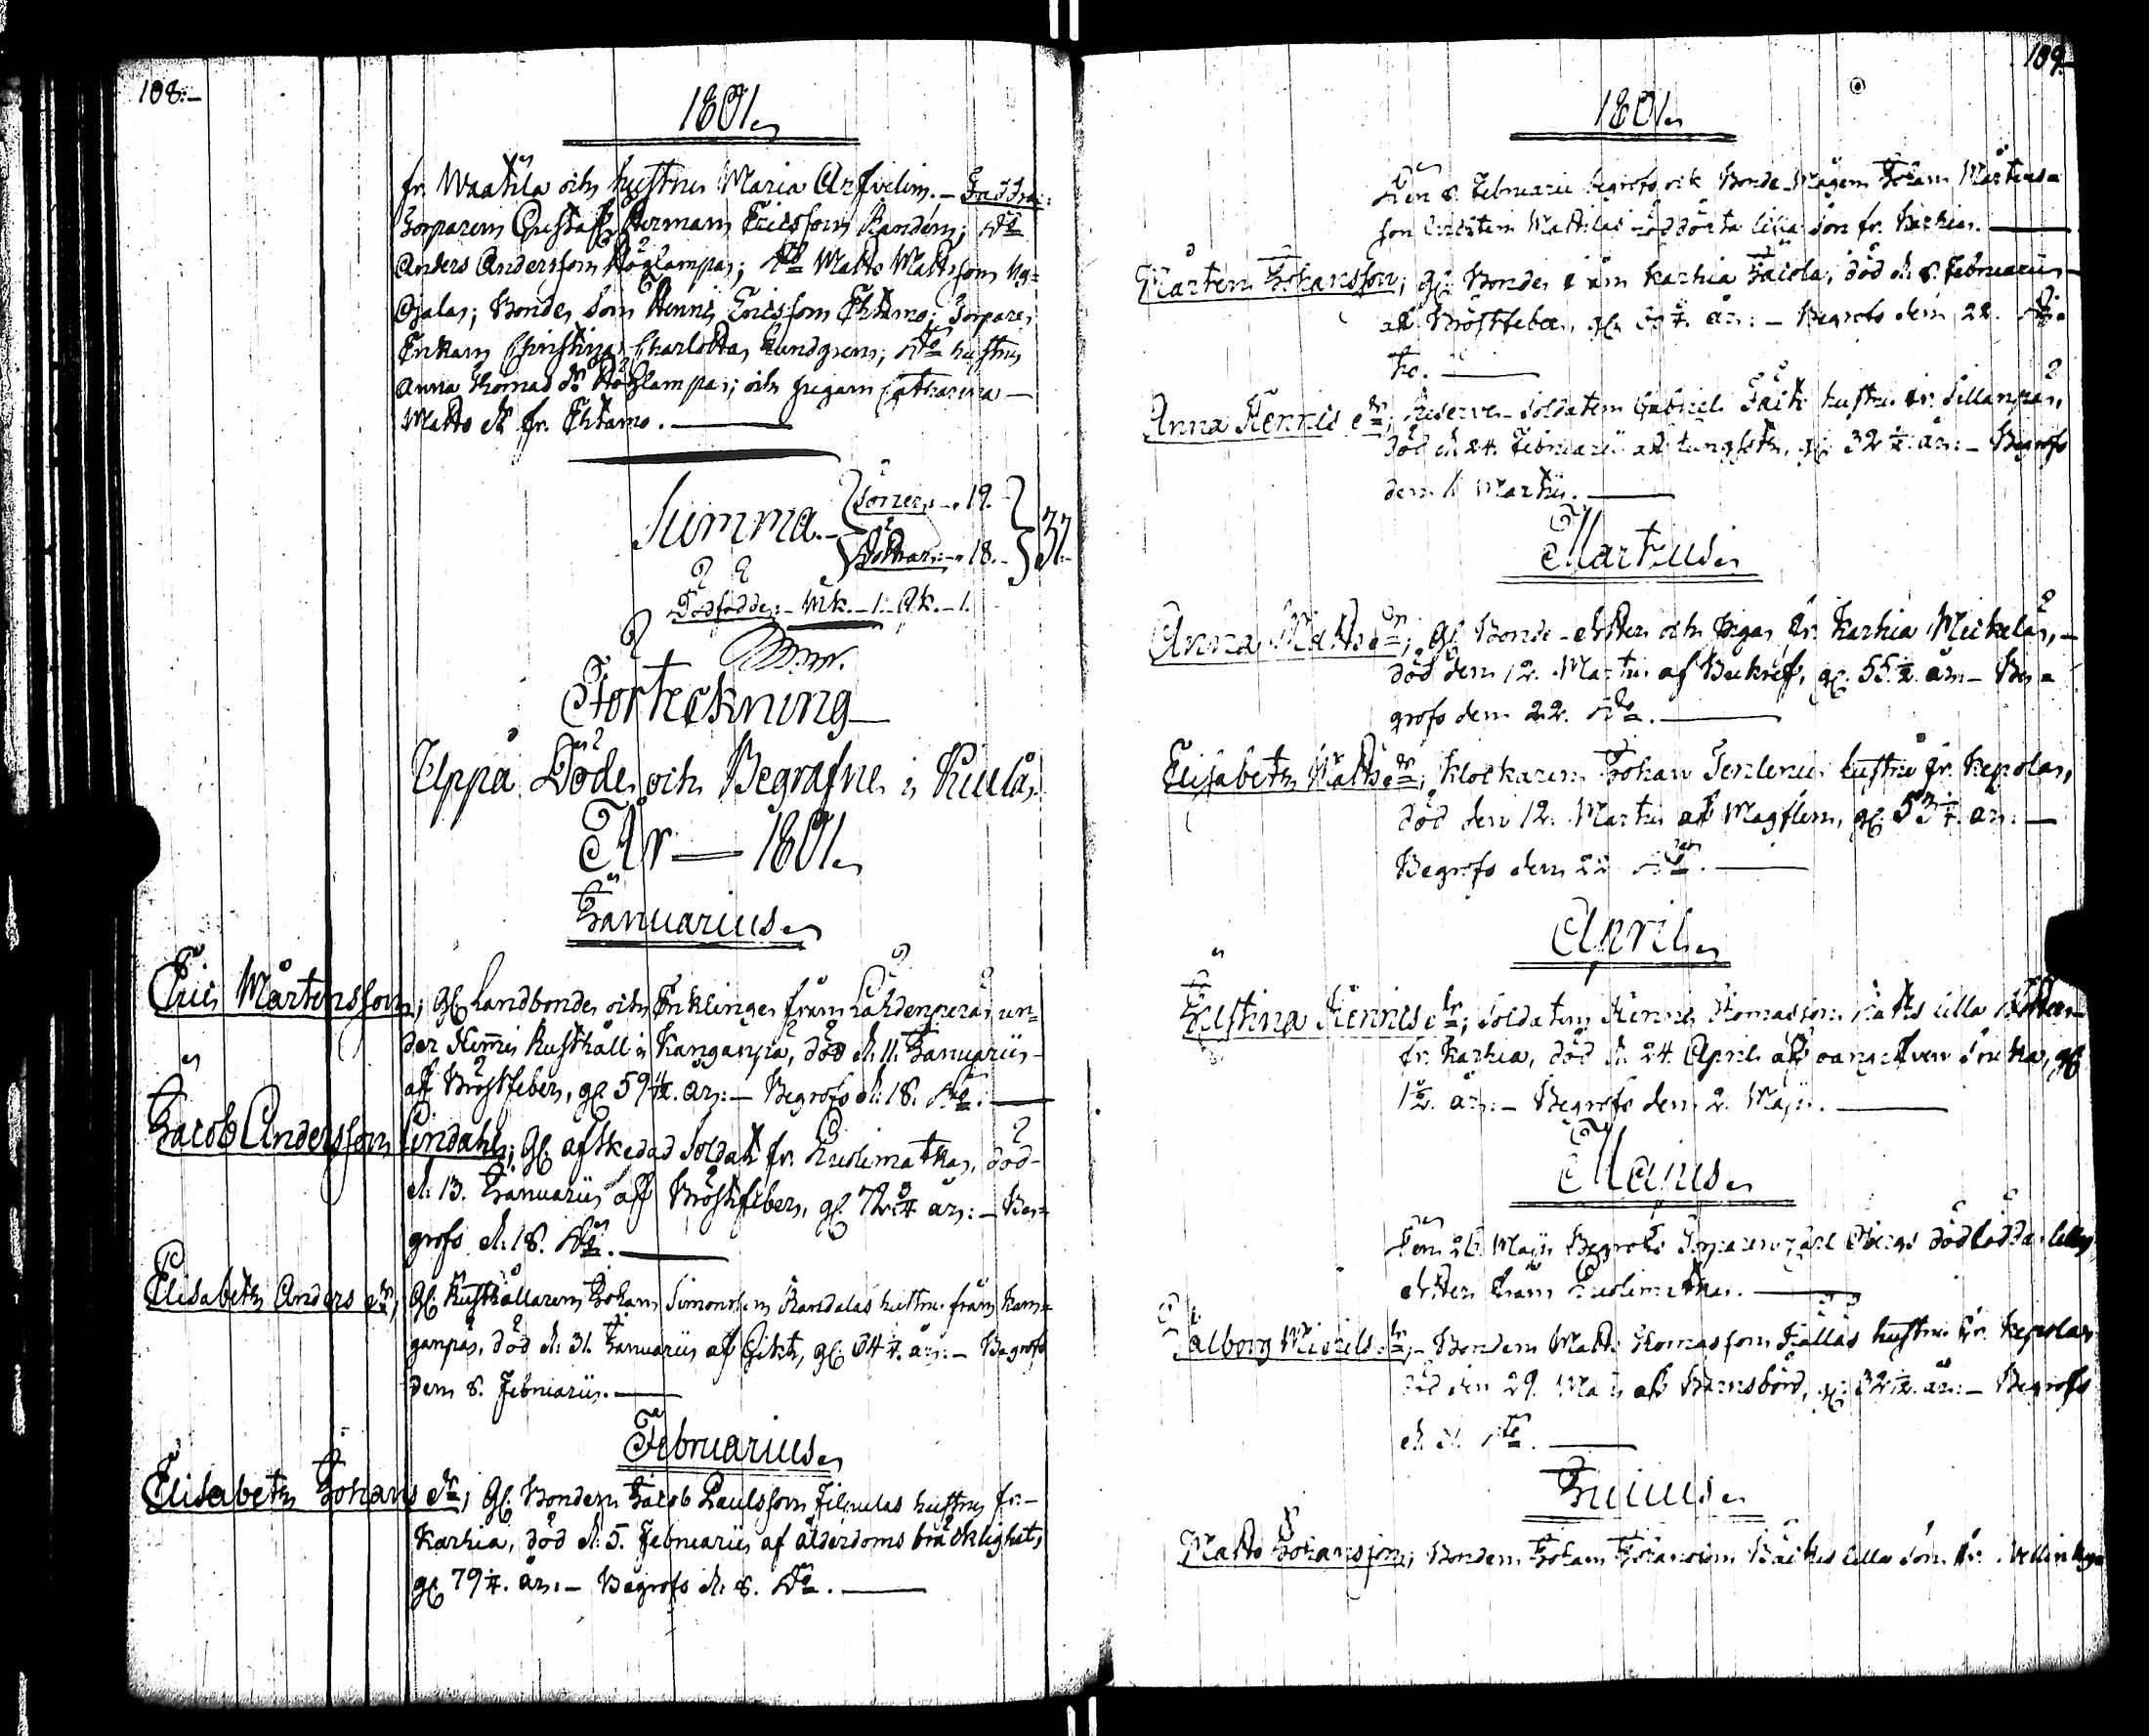 108:-
1801.
fr. Waatila och hustru Maria Arfvelin. - Faddrar:
Torparen Gustaf Herman Ericsson Randén; Do
Anders Andersson Höglampa; Do Matts Mattsson Ny=
gala; Bonde Son Henric Ericsson Ehtamo; Torpare
Enkan Christina Charlotta Lundgren; Do hustru
Anna Thomas dr Höglampa; och pigan Catharina
Matts dr fr. Ehtamo.
Summa. Söner: - 19.
Döttrar: - 18. 37.
Dödfödde: - Mk. - 1. Qk. - 1.
Förteckning
Uppå Döde och Begrafne i Kiula
År - 1801.
Januarius.
Eric Mårtensson; gl. Landbonde och Enklinge från Lähdenperä un=
der Hennis Rusthåll i Kanganpä, död d. 11. Januarii
af Bröstfeber, gl. 59 år: - Begrofs d. 18. Do.
Jacob Andersson Lindahl; gl. afskedad Soldat fr. Huolimatka, död
d. 13. Januarii af Bröstfeber, gl. 72 3/4 år: - Be=
grofs d. 18. Do.
Elisabeth Anders dr; gl. Rusthållaren Johan Simonssons Randalas hustru från Kan=
ganpä, död d. 31. Januarii af Gikt, gl. 64 1/4 år: - Begrofs
den 8. Februarii.
Februarius.
Elisabeth Johans dr; gl. Bonden Jacob Paulsson Filpulas hustru fr.
Karhia, död d. 5. Februarii af ålderdoms bräcklighet,
gl. 79 1/4. år: - Begrofs d. 8. Do.
109.-
1801.
Den 8. Februarii begrofs ock Bonde-Mågen Johan Mårtens=
son Mattilas dödfödda lilla Son fr. Karhia.
Mårten Johansson; gl. Bonde från Karhia Jaiola, död d. 8. Februarii
af Bröstfeber, gl. år: - Begrofs den 22. Di=
to.
Anna Henrics dr; Reserve-Soldaten Gabriel hustru fr. Sillanpä,
död d. 24. Februarii af lungsot, gl. 32 1/2 år: - Begrofs
den 1. Martii.
Martius.
Anna Matts dr; gl. Bonde-dotter och Piga fr. Karhia Mickelä,
död den 12. Martii af Bukref, gl. 55 1/2 år - Be=
grofs den 22. Do.
Elisabeth Matts dr; Klockaren Johan Tenlenii hustru fr. Kepola,
död den 12. Martii af Magflen, gl. 53 1/4. år: -
Begrofs den 22 Do.
April.
Justina Henrics dr; Soldaten Henric Thomasson lilla dotter
fr. Karhia, död d. 24. April af gl.
1 1/2. år: - Begrofs den 2. Maji.
Maius.
Den 26. Maji Begrofs Torparen dödfödda lilla
dotter från Huolimatka.
Valborg Michels dr; Bonden Matts Thomasson hustru fr. Kepola
död den 29. Maji af Barnsbörd, gl. 32 1/2. år: - Begrofs
d. 31. Do.
Junius.
Matts Johansson; Bonden Johan Johansson lilla Son fr.